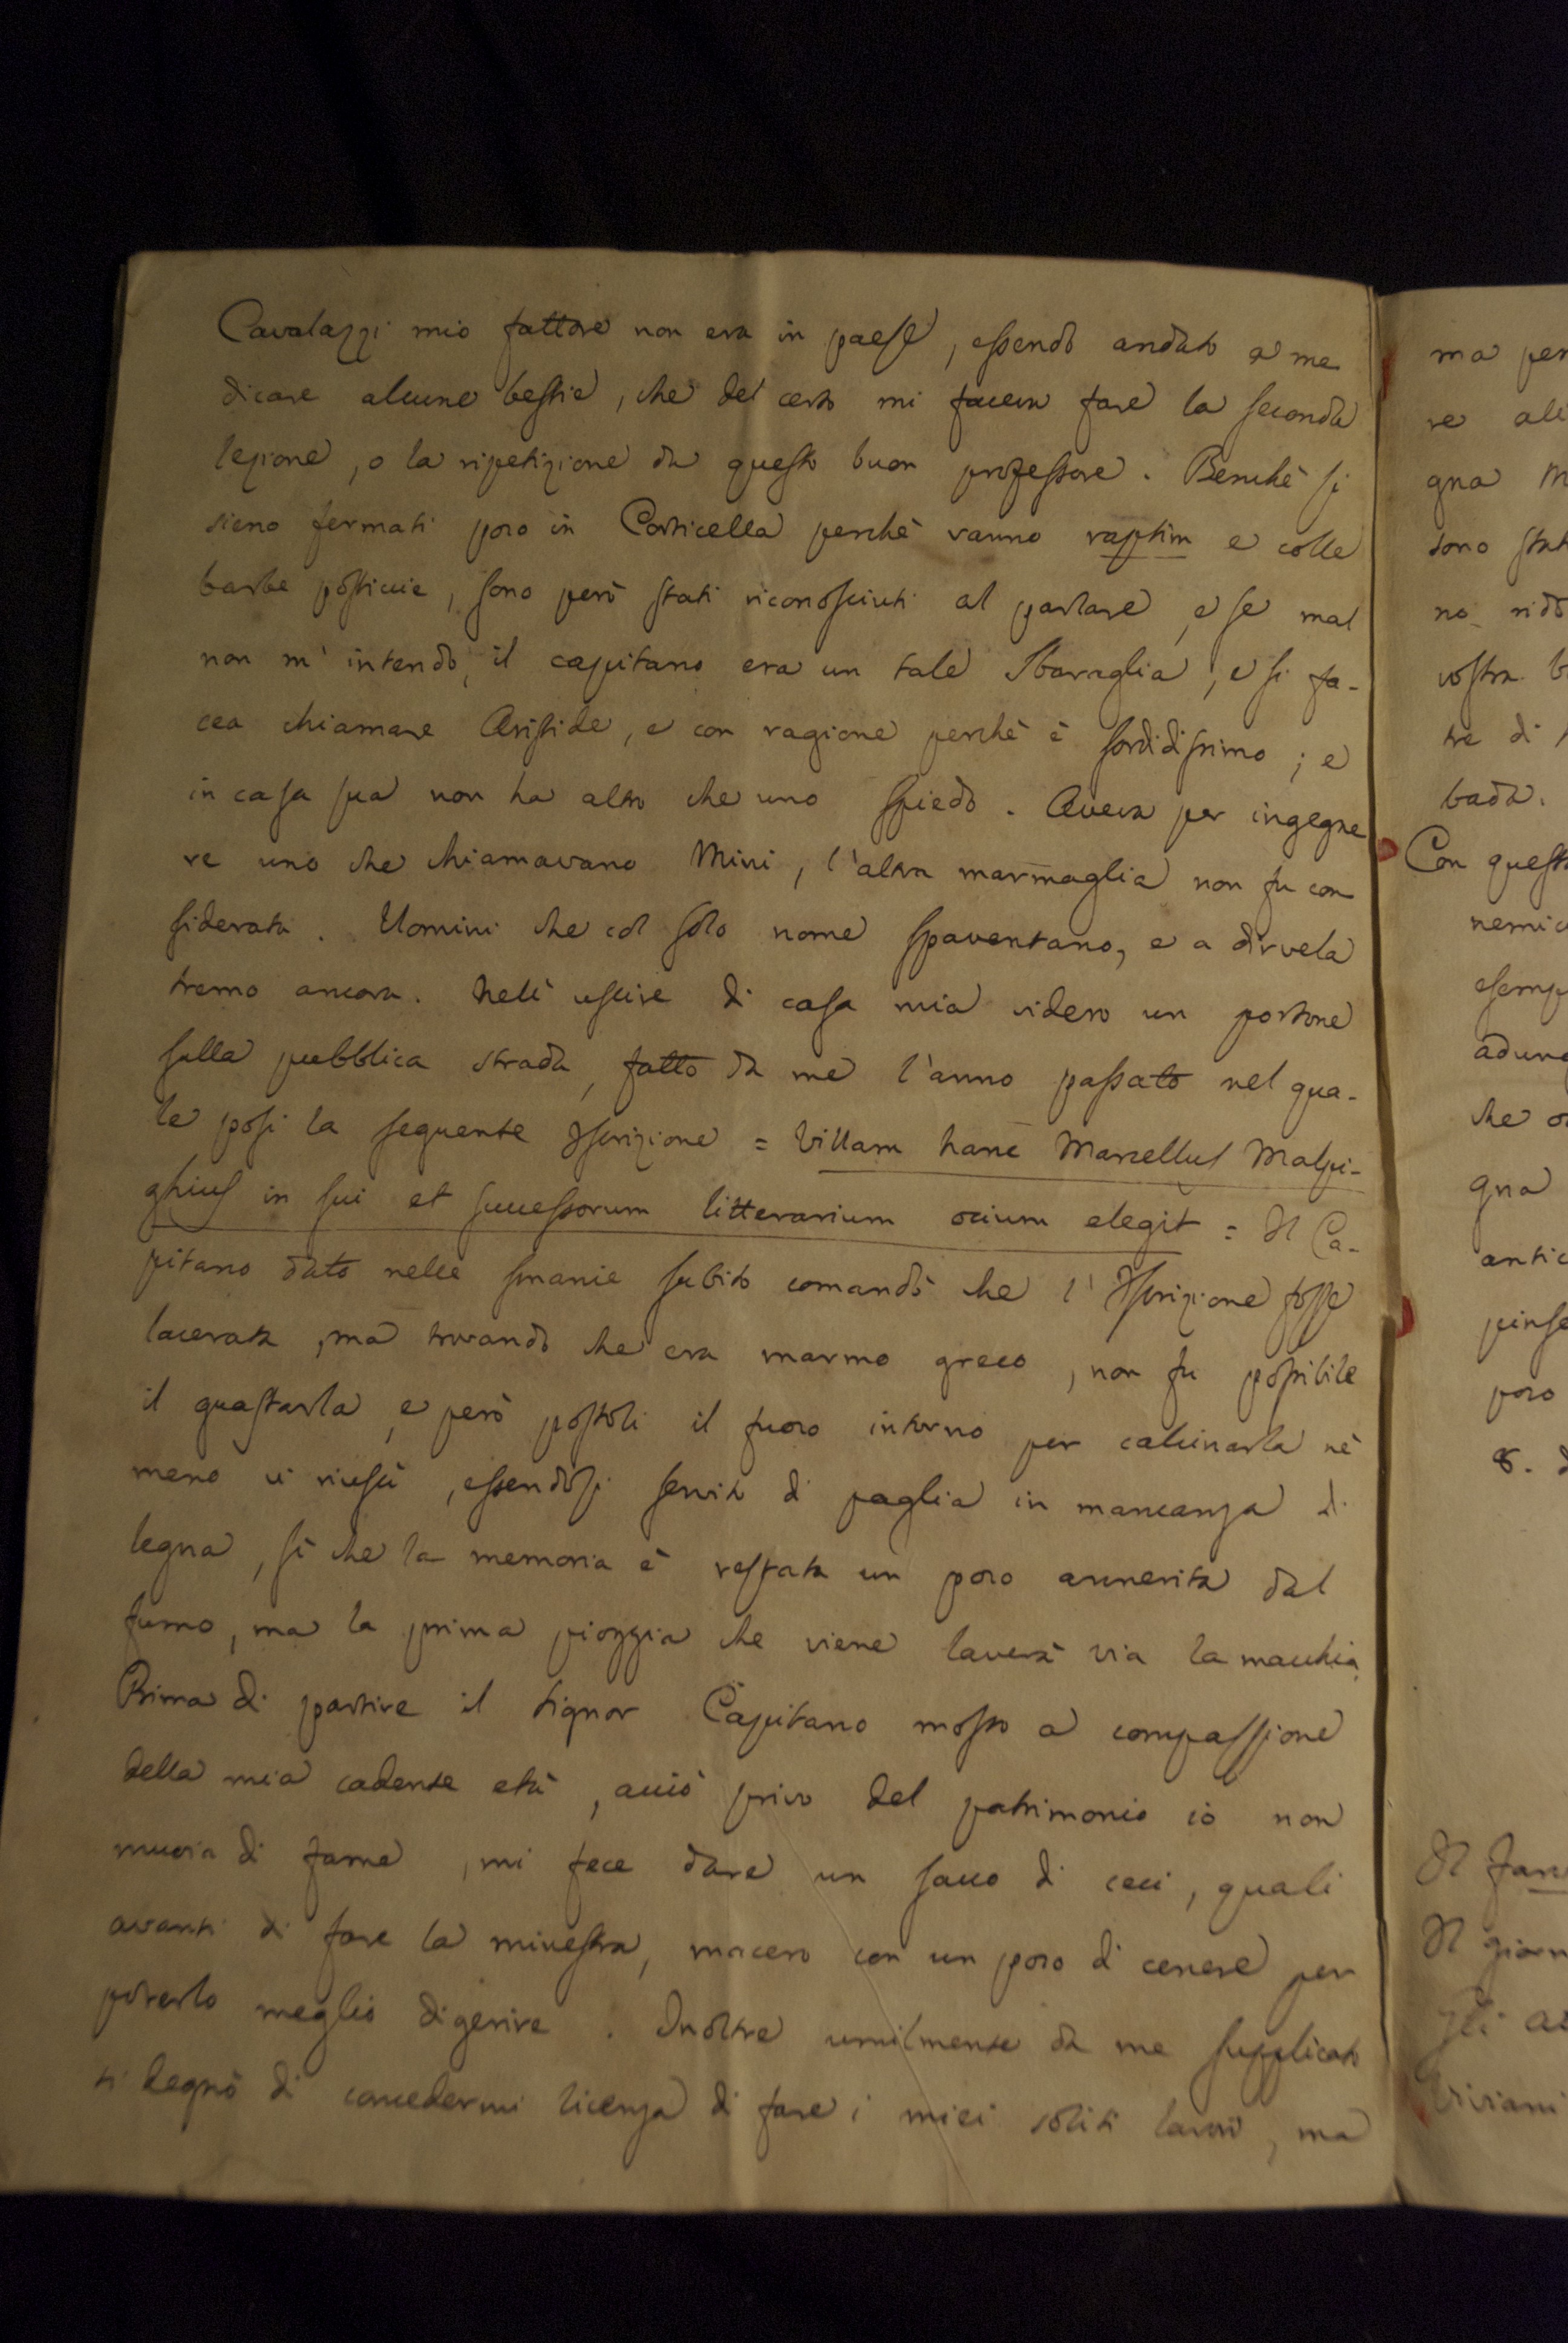 Cavalazzi mio fattore non era in paese, essendo andato a me
dicare alcune bestie, che del certo mi faceva fare la seconda
lezione, o la ripetizione da questo buon professore. Benchè si
sieno fermati poco in Corticella perchè vanno raptim e colle
barbe posticcie, sono però stati riconosciuti al parlare, e se mal
non m'intendo, il capitano era un tale Sbaraglia, e si fa-
cea chiamare Aristide, e con ragione perchè è sordidissimo; e
in casa sua non ha altro che uno spiedo. Aveva per ingegne
re uno che chiamavano Mini, l'altra marmaglia non fu con
siderata. Uomini che col solo nome spaventano, e a dirvela
tremo ancora. Nell'uscire di casa mia videro un portone
sulla pubblica strada, fatto da me l'anno passato nel qua-
le posi la seguente Iscrizione = Villam hanc Marcellus Malpi-
ghius in sui et successorum litterarium ocium elegit = Il Ca-
pitano dato nelle smanie subito comandò che l'Iscrizione fosse
lacerata, ma trovando che era marmo greco, non fu possibile
il guastarla, e però postoli il fuoco intorno per calcinarla nè
meno vi riuscì, essendosi servito di paglia in mancanza di
legna, sì che la memoria è restata un poco annerita dal
fumo, ma la prima pioggia che viene laverà via la macchia.
Prima di partire il signor Capitano mosso a compassione
della mia cadente età, acciò privo del patrimonio io non
muoia di fame, mi fece dare un sacco di ceci, quali
avanti di fare la minestra, macero con un poco di cenere per
poterlo meglio digerire. Inoltre umilmente da me supplicato
si degnò di concedermi licenza di fare i miei soliti lavori, ma
ma per
re
gna
sono
no
vostra
tre di
bada.
Con
nemic
esemp
adun
che
gna
antic
poco
8.
Il
Il
Gli
Viviani